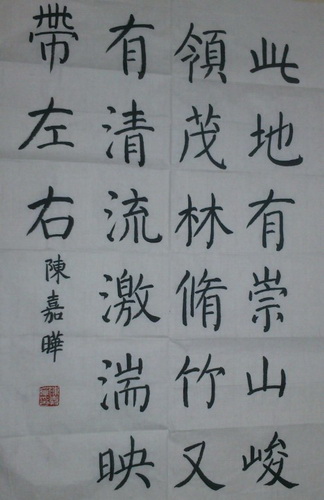 此地有崇山峻
領茂林脩竹又
有清流激湍映
帶左右
陳嘉曄